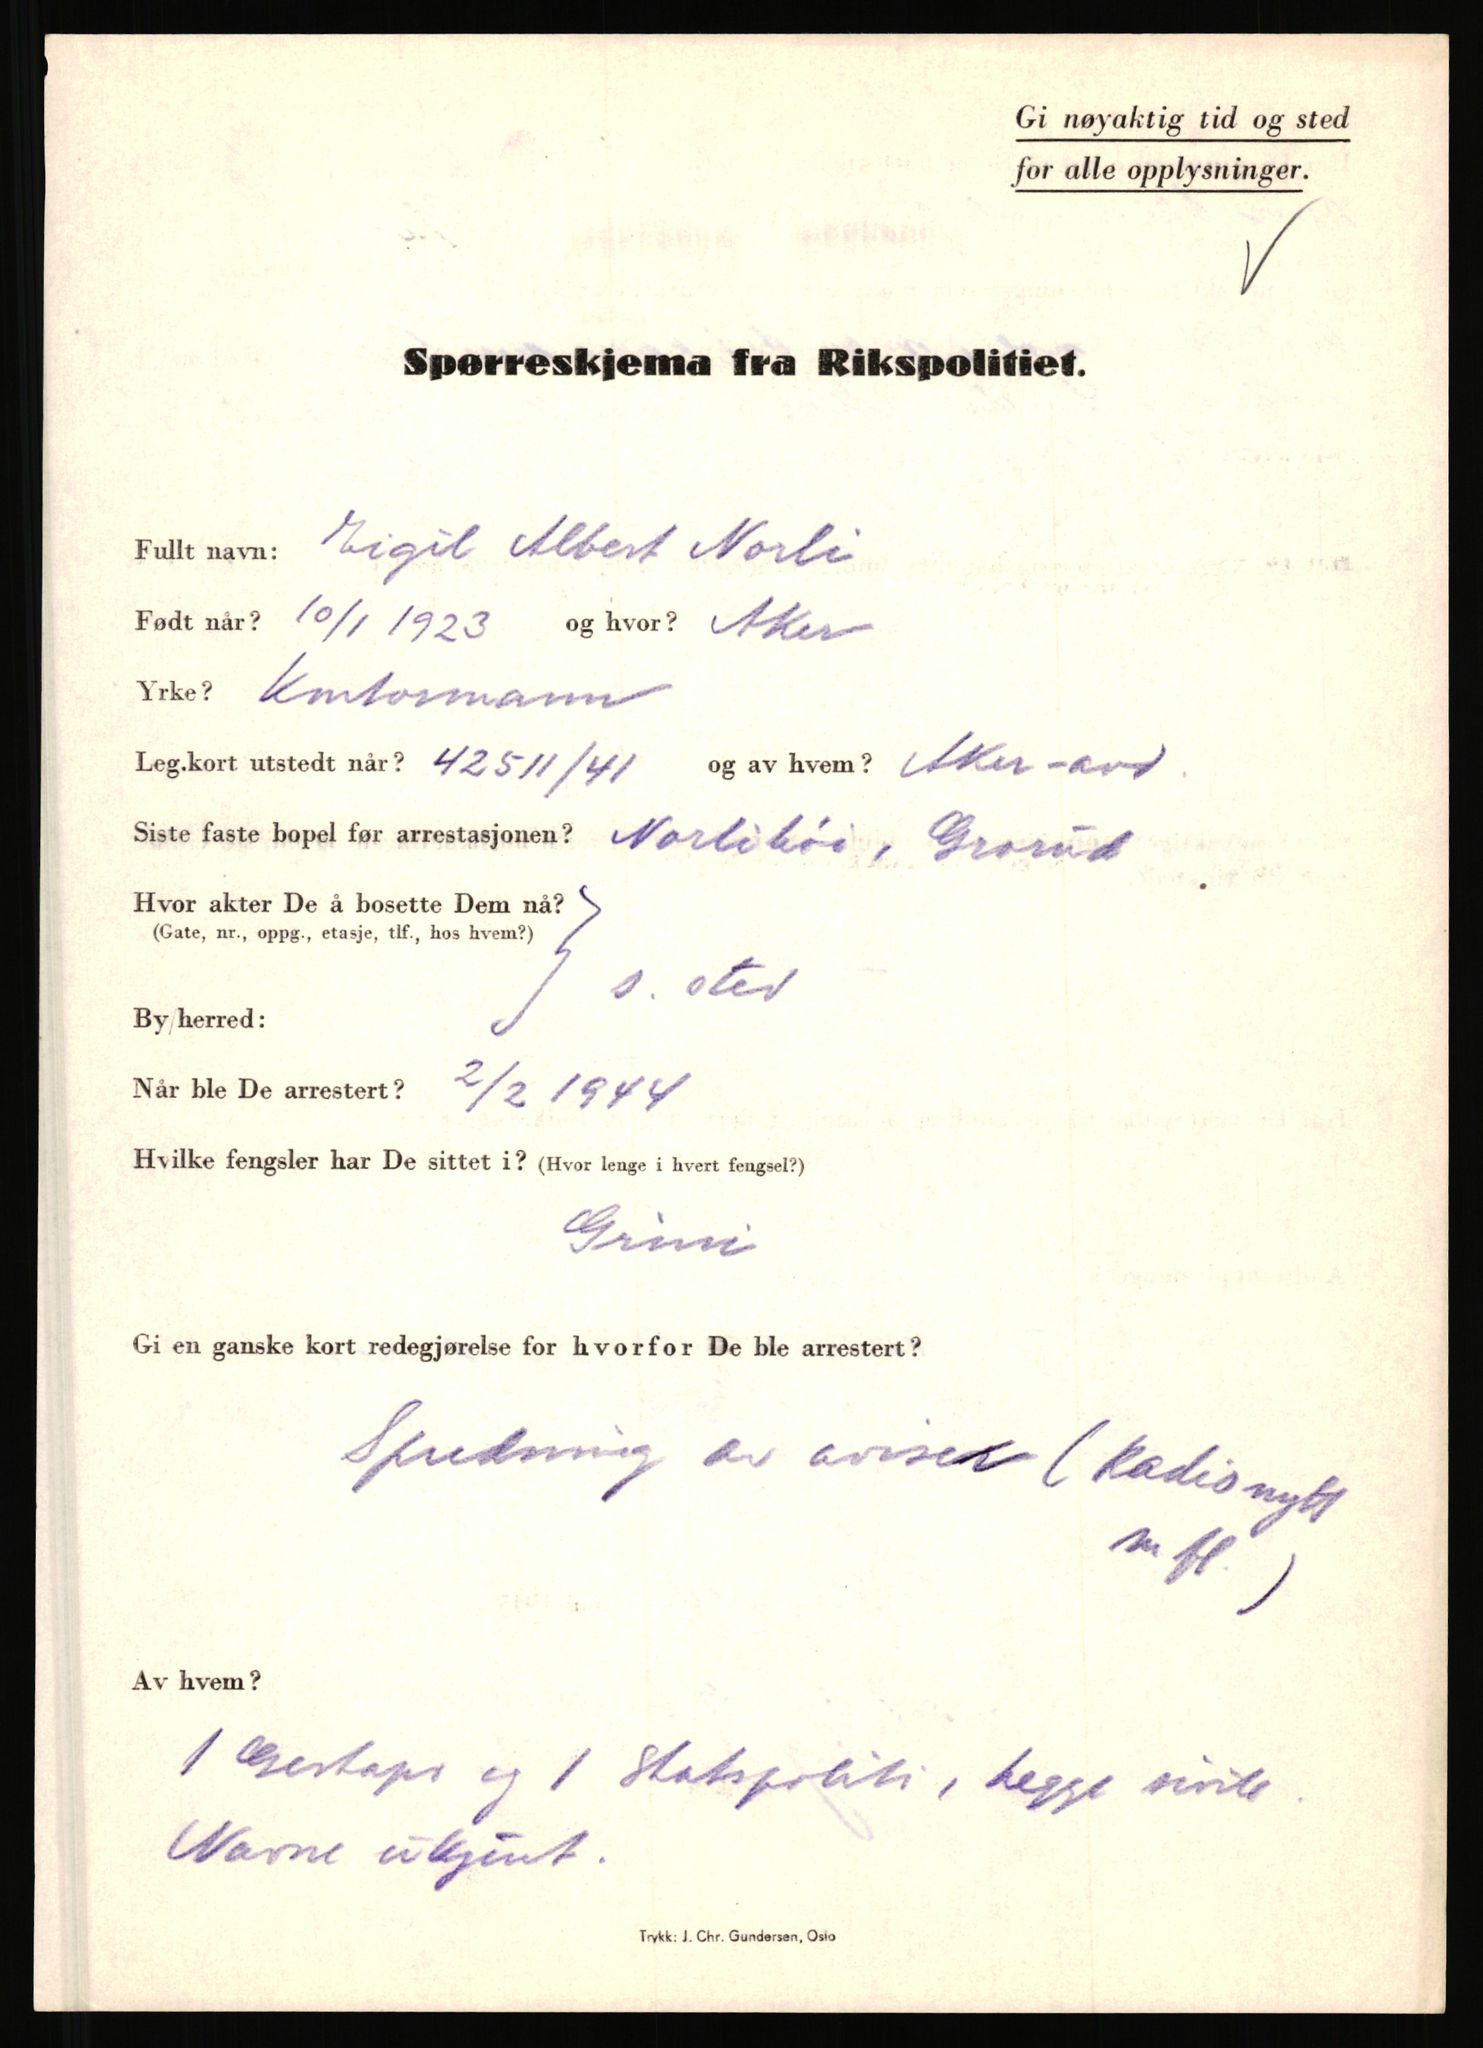 Gi nøyaktig tid og sted
for alle opplysninger.
Spørreskjema fra Rikspolitiet.
Fullt navn: Eigil Albert Norli
Født når? 10/1 1923 og hvor? Aker
Yrke? Kontormann
Leg.kort utstedt når? 42511/41 og av hvem? Aker-avd.
Siste faste bopel før arrestasjonen? Norlihöi, Grorud
Hvor akter De å bosette Dem nå?
(Gate, nr., oppg., etasje, tlf., hos hvem?)
s. sted
By/herred:
Når ble De arrestert? 2/2 1944
Hvilke fengsler har De sittet i? (Hvor lenge i hvert fengsel?)
Grini
Gi en ganske kort redegjørelse for hvorfor De ble arrestert?
Spredning av aviser (Radionytt
m fl.)
Av hvem?
1 Gestapo og 1 Statspoliti, begge sivile.
Navne ukjent.
Trykk: J. Chr. Gundersen, Oslo